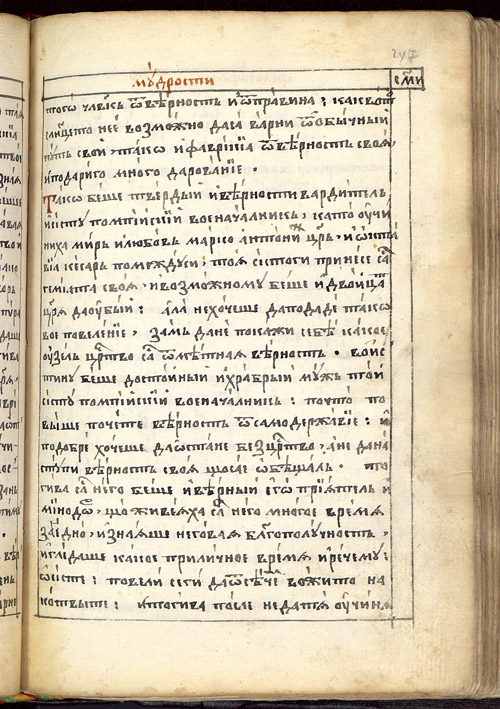 247
мꙋ́дрости
сми
тогѡ чл҃вкъ ѿ вѣрность и ѿ правина : како и
слнцето нее возможно даса варни ѿ обычный
путъ свой · тако и фабрикїа ѿ вѣрность своѧ
и подариго много дарованїе ·
Тако беше твердый и вѣрности вардитель,
сісту помпійскїй военачалникъ, като ꙋчи
ниха миръ и любовь марко антонїй цр҃ь, и
вїа кесаръ помеждуси, тоѧ сістоги принесе са
геміата своѧ, и возможному беше и двоица
цр҃ѧ даѹбый : ала нехочеше даподаде тако
вое повеленїе, замь дане покажи себѣ какое,
оузелъ цр҃тво са ѿмѣтнаѧ вѣрность · воис
тину беше достойный и храбрый мужъ той
сісту помпійскїй военачалникъ : почто по
выше почете вѣрность ѿ самодержавїе : и
подобре хочеше да ѡстане без цр҃тво, а не дана
стꙋпи вѣрность своѧ що сае ѡбѣщалъ · то
гива са него беше и вѣрный его прїѧтель и
минодѡ, що живеѧха са него многое времѧ
заедно, и знаѧше неговаѧ бл҃гополучность,
и гледаше какое приличное времѧ и речему :
ѡ сісте : повели сеги да ѿсѣче вожито на
котвыте : и тогива после недатѧ ꙋчинѧ